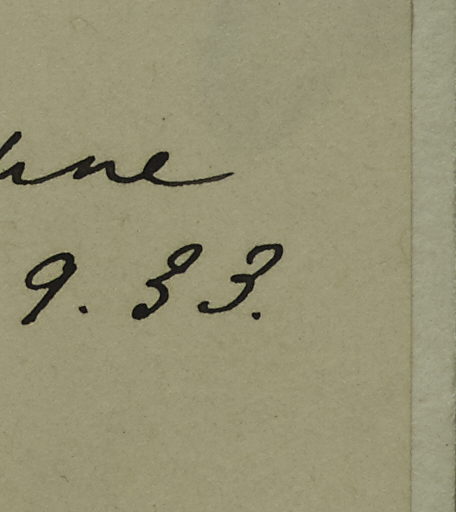 hne
9. 33.